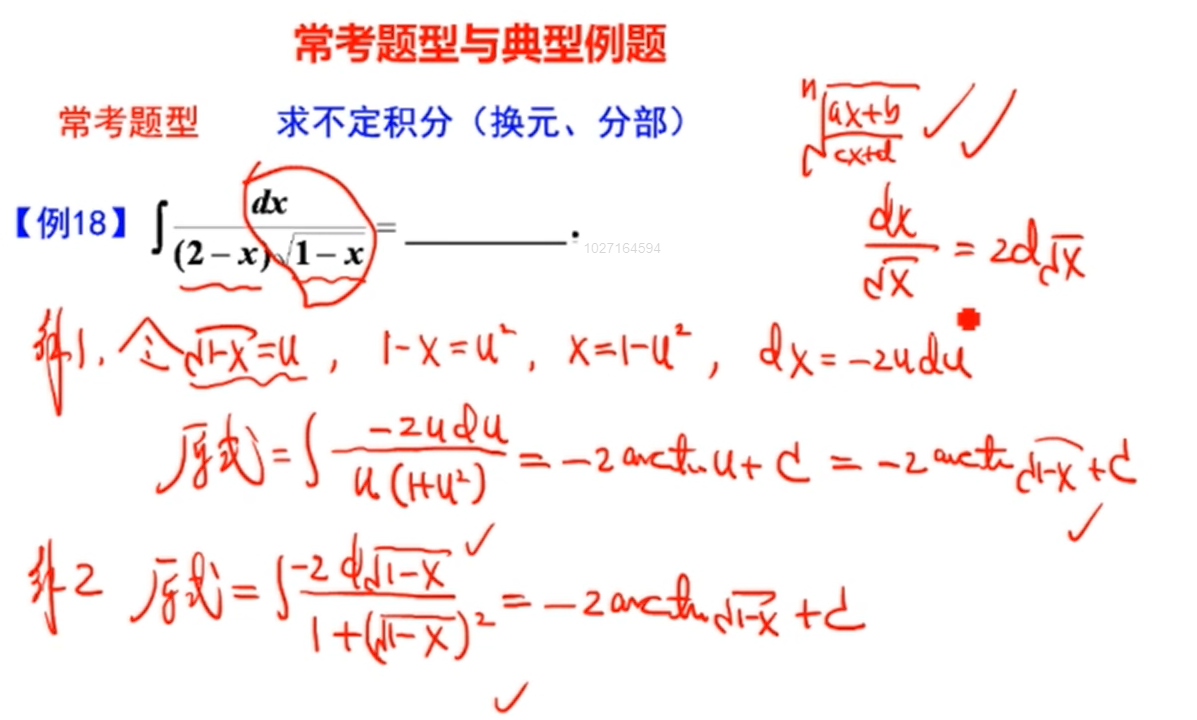 常考题型与典型例题
常考题型 求不定积分（换元、分部）
ⁿ√((ax+b)/(cx+d)) ✓ ✓
【例18】∫ dx / ((2−x)√(1−x)) = ________.
1027164594
dx/√x = 2d√x
解1. 令√(1-x)=u, 1-x=u², x=1-u², dx=-2udu
原式=∫ -2udu / (u(1+u²)) = -2arctan u+C = -2arctan√(1-x)+C ✓
解2 原式=∫ -2d√(1-x) / (1+(√(1-x))²) ✓ = -2arctan√(1-x)+C
✓